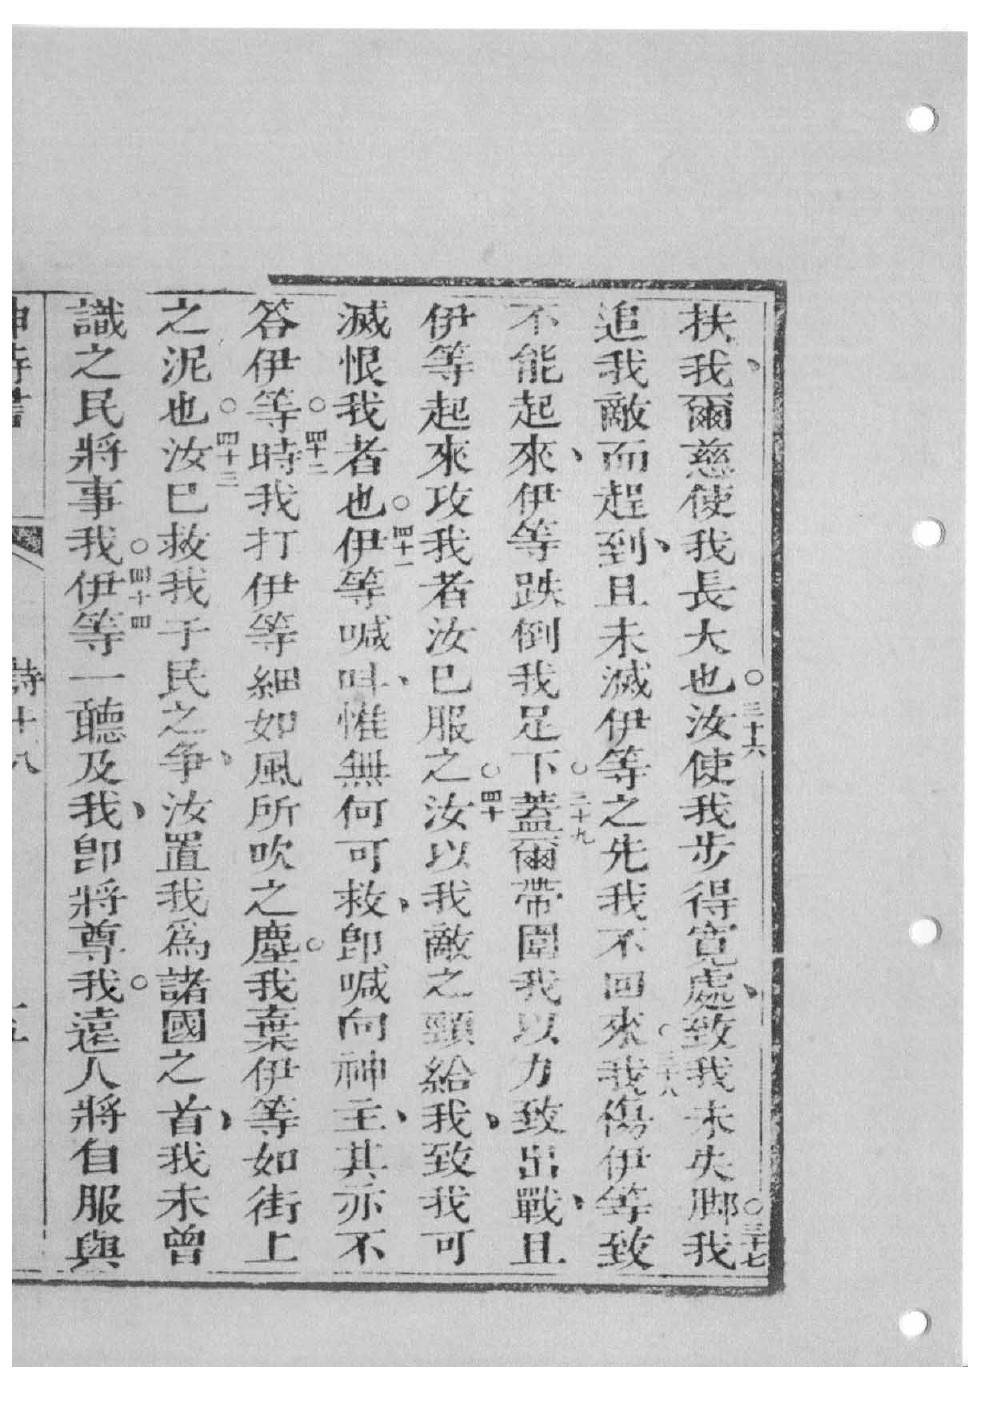 扶我、爾慈使我長大也○三十六汝使我步得寬處、致我未失脚○三十七我
追我敵而趕到、且未滅伊等之先我不回來○三十八我傷伊等致
不能起來、伊等跌倒我足下○三十九蓋爾帶圍我以力致出戰、且
伊等起來攻我者汝已服之○四十汝以我敵之頸給我、致我可
滅恨我者也○四十一伊等喊叫、惟無何可救、即喊向神主、其亦不
答伊等○四十二時我打伊等細如風所吹之塵○我棄伊等如街上
之泥也○四十三汝已救我于民之爭、汝置我爲諸國之首、我未曾
識之民將事我○四十四伊等一聽及我、即將尊我○遠人將自服與
神詩書 詩十八